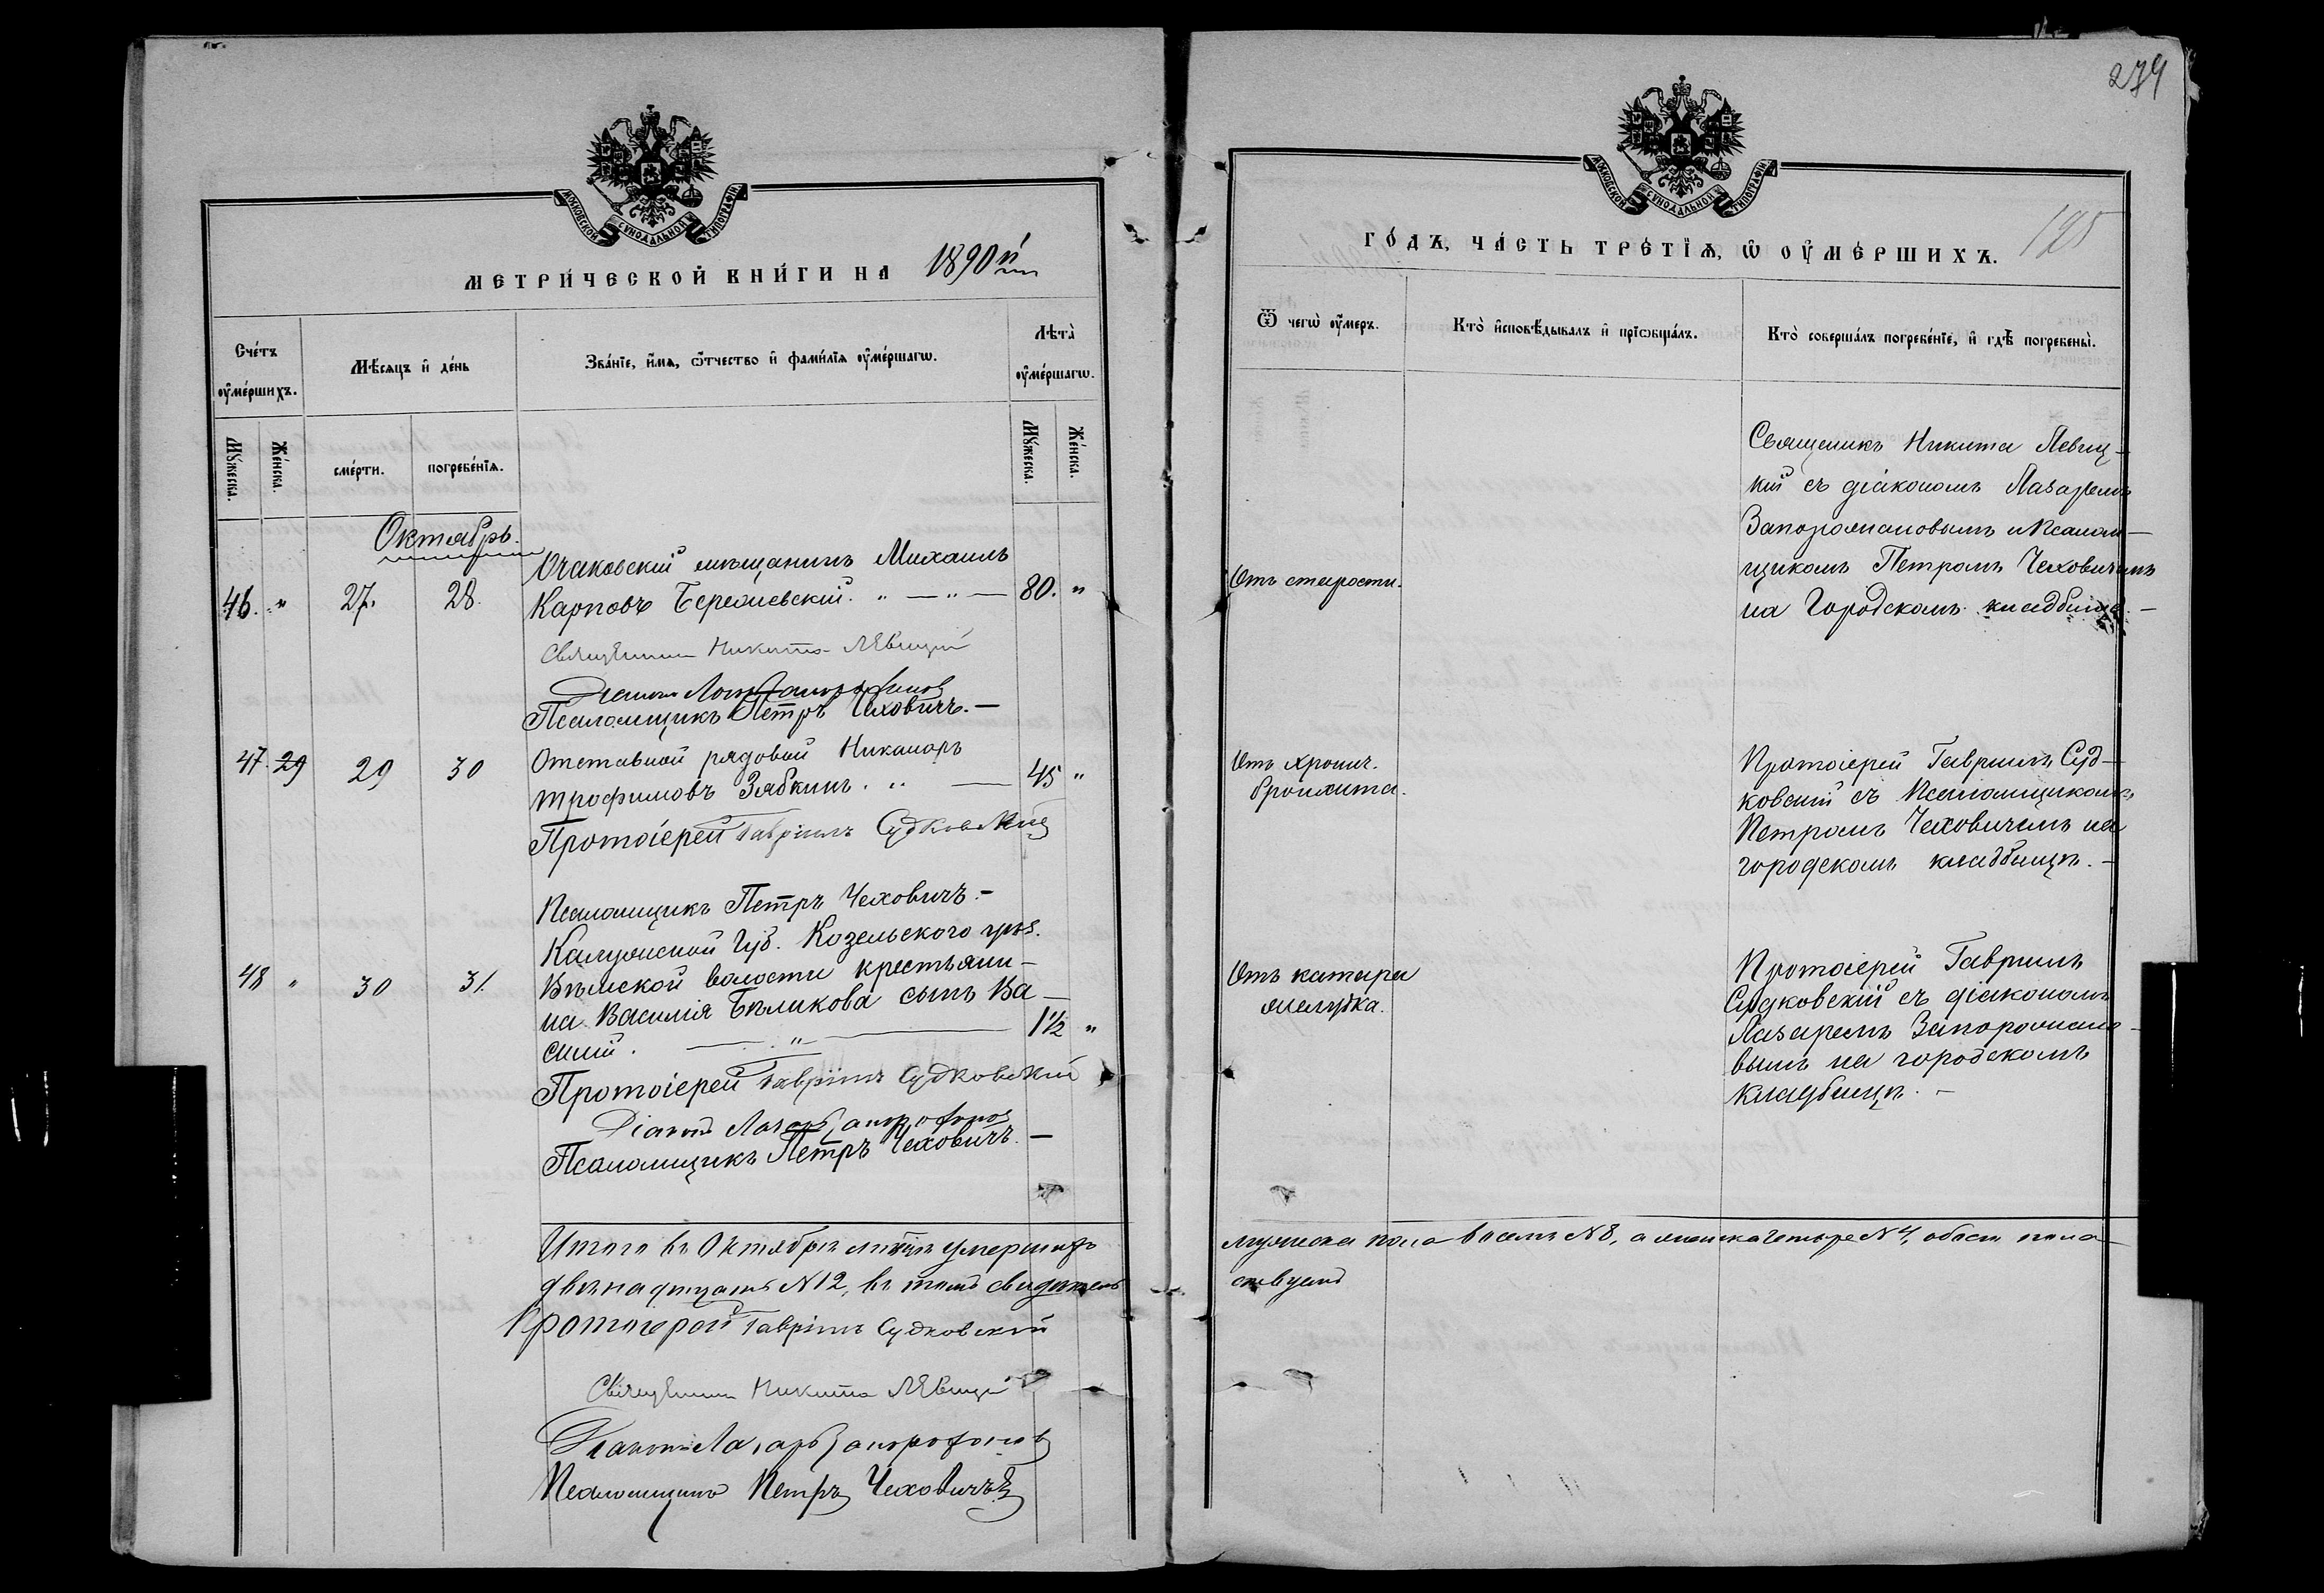 279
125
МОСКОВСКОЙ СѴНОДАЛЬНОЙ ТИПОГРАФІИ
МЕТРИ́ЧЕСКОЙ КНИ́ГИ НА 1890й
Сче́тъ ᲂу҆ме́ршихъ.
Мѣ́сяцъ и҆ де́нь
Зва́нїе, и҆́мѧ, ѻ҆́тчество и҆ фами́лїѧ ᲂу҆ме́ршагѡ.
Лѣ́та ᲂу҆ме́ршагѡ.
Мꙋ́жеска.
Же́нска.
сме́рти.
погребе́нїѧ.
Мꙋ́жеска.
Же́нска.
Октябрь.
Очаковскій мѣщанинъ Михаилъ
46. " 27. 28. Карповъ Бережевскій. " — " — 80. "
Священникъ Никита Левицкій
Псаломщикъ Петръ Чеховичъ. —
47. 29 29 30 Отставной рядовой Никаноръ
Трофимовъ Зябкинъ. " — 45 "
Протоіерей Гавріилъ Судковскій
Псаломщикъ Петръ Чеховичъ. —
Калужской Губ. Козельского уѣз.
48 " 30 31. волости крестьяни-
на Василія Бѣликова сынъ Ва-
силій. — " — 1½ "
Протоіерей Гавріилъ Судковскій
Діаконъ Лазарь Запорожановъ
Псаломщикъ Петръ Чеховичъ. —
Итого въ Октябрѣ мѣсяцѣ умершихъ
двѣнадцать №12, въ томъ свидѣтель
Протоіерей Гавріилъ Судковскій
Священникъ Никита Левицкій
Діаконъ Лазарь Запорожановъ
Псаломщикъ Петръ Чеховичъ
МОСКОВСКОЙ СѴНОДАЛЬНОЙ ТИПОГРАФІИ
ГО́ДЪ, ЧА́СТЬ ТРЕ́ТЇѦ, Ѡ҆ ᲂУ҆МЕ́РШИХЪ.
Ѿ чегѡ̀ ᲂу҆́меръ.
Кто̀ и҆сповѣ́дывалъ и҆ прїѡбща́лъ.
Кто̀ соверша́лъ погребе́нїе, и҆ гдѣ̀ погребены̀.
Отъ старости.
Священикъ Никита Левиц-
кій съ діакономъ Лазаремъ
Запорожановымъ и Псалом-
щикомъ Петромъ Чеховичемъ
на Городскомъ кладбищѣ. —
Отъ хронич.
бронхита.
Протоіерей Гавріилъ Суд-
ковскій съ Псаломщикомъ
Петромъ Чеховичемъ на
городскомъ кладбищѣ. —
Отъ катара
желудка.
Протоіерей Гавріилъ
Судковскій съ діакономъ
Лазаремъ Запорожано-
вымъ на городскомъ
кладбищѣ. —
мужеска пола восемь №8, а женска четыре №4, обоего пола
ствуемъ